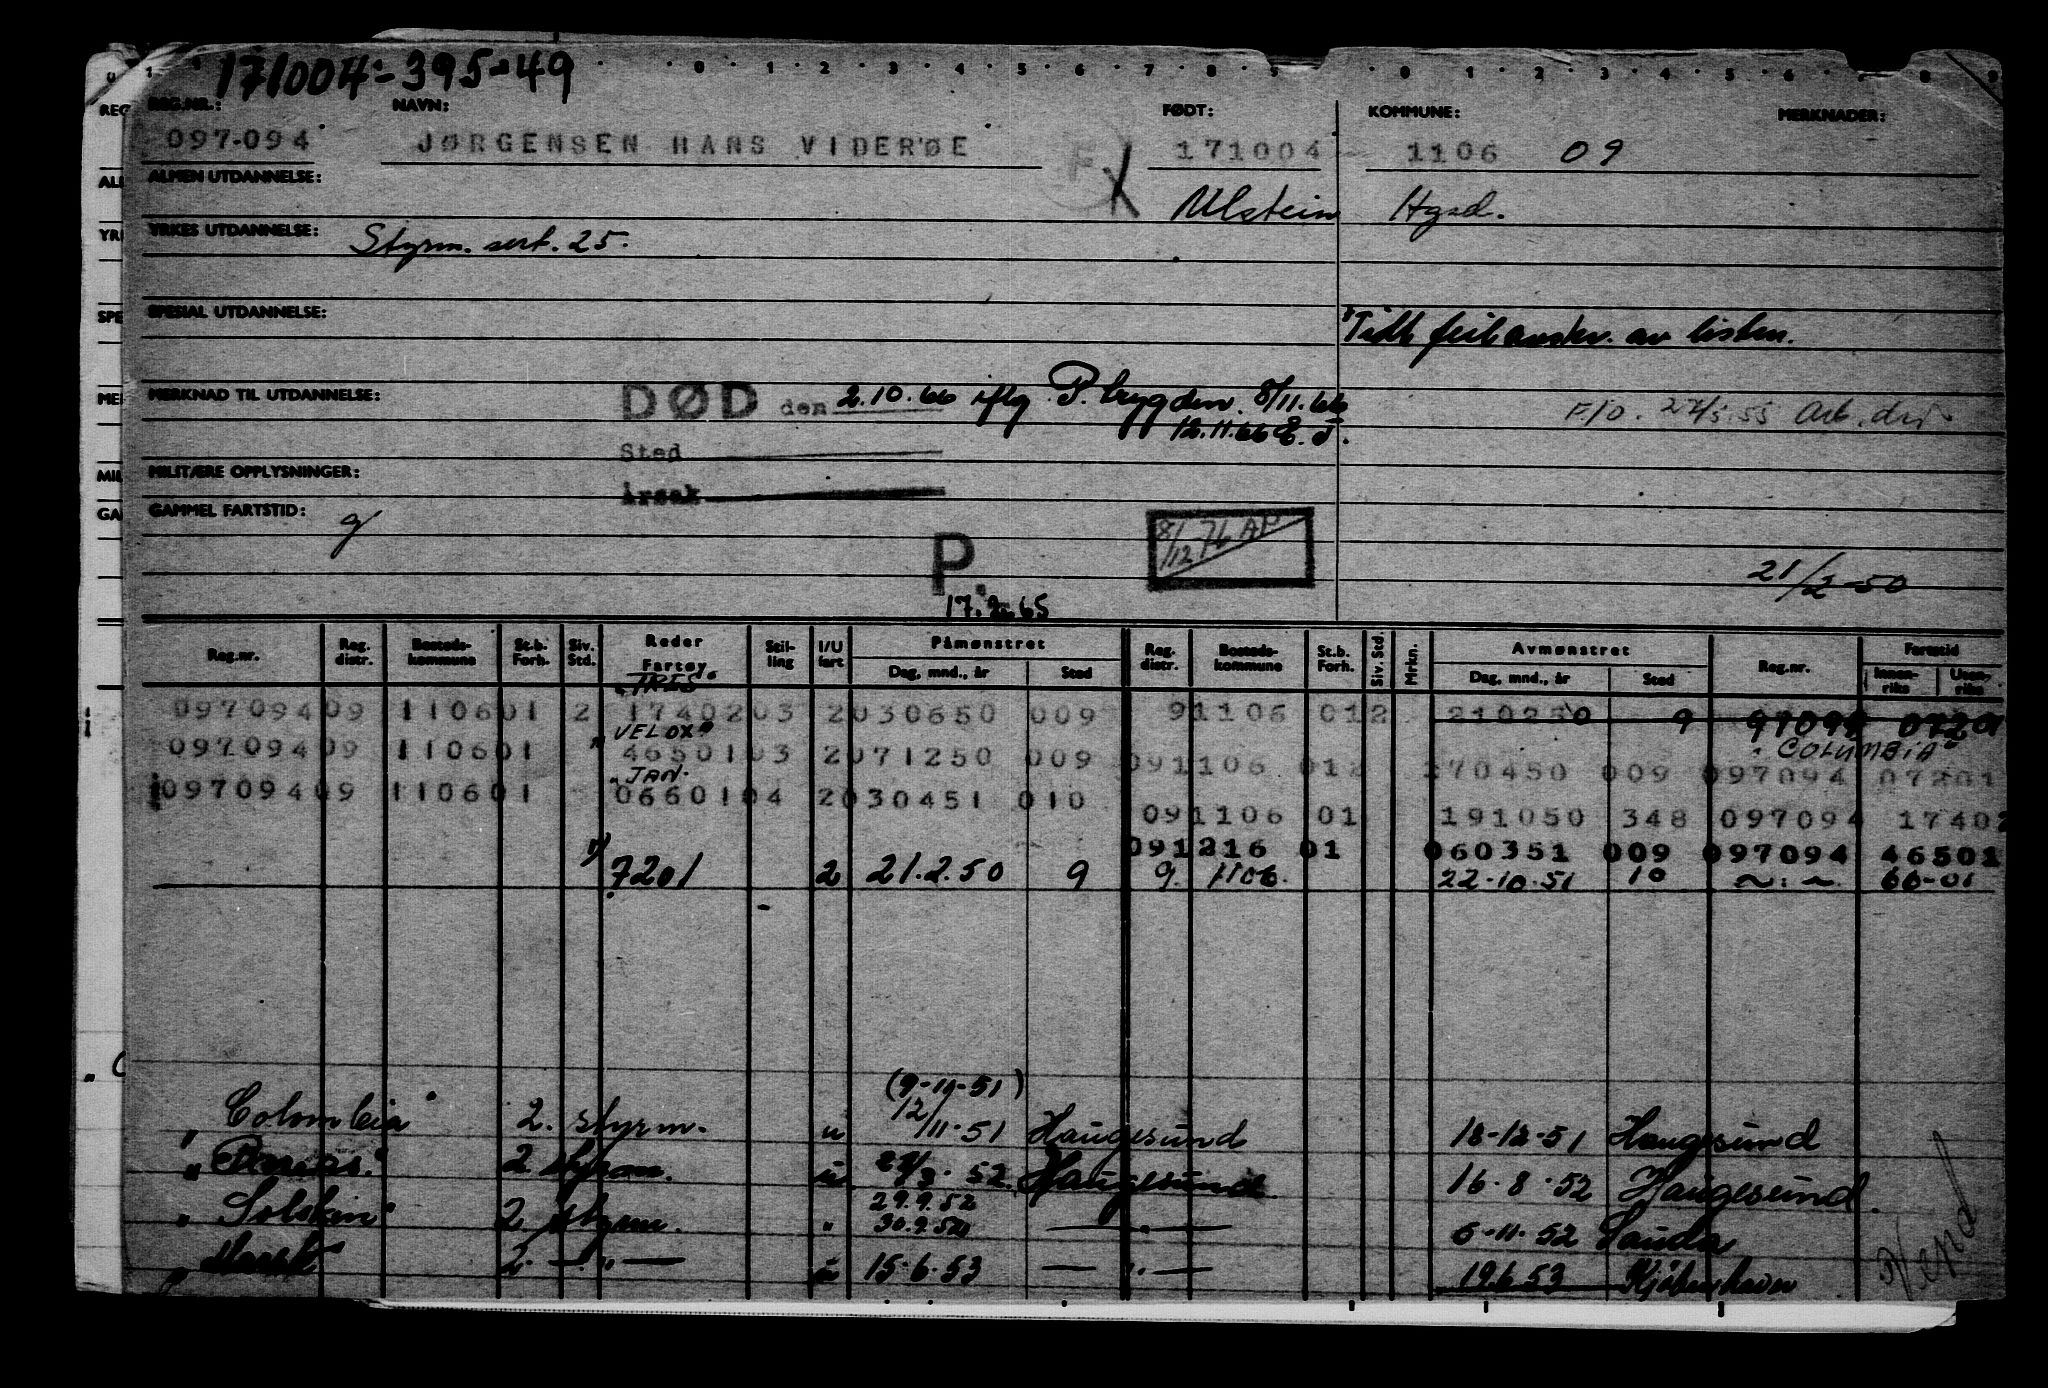 171004-395-49
0 1 2 3 4 5 6 7 8 9 0 1 2 3 4 5 6 7 8 9
REG.NR.: NAVN: FØDT: KOMMUNE: MERKNADER:
097-094 JØRGENSEN HANS VIDERØE 171004 1106 09
ALMEN UTDANNELSE: Ulstein Hgsd.
YRKES UTDANNELSE: Styrm. sert. 25.
SPESIAL UTDANNELSE:
av listen.
MERKNAD TIL UTDANNELSE: DØD den 2.10.66 iflg P. trygden. 8/11.66
F/O. 27/5.55 Arb. dir.
12.11.66 E.J.
Sted
MILITÆRE OPPLYSNINGER:
Årsak
GAMMEL FARTSTID: g
8/12 76 AP
P.
17.2.65
21/2-50
Reg.nr. Reg. distr. Bosteds-kommune St.b. Forh. Siv. Std. Reder Fartøy Stil-ling I/U fart Påmønstret Dag, mnd., år Sted Reg. distr. Bosteds-kommune St.b. Forh. Siv. Std Mrkn. Avmønstret Dag, mnd., år Sted Reg.nr. Fartstid Innen-riks Uten-riks
"IRIS"
097094 09 1106 01 2 17402 03 2 030650 009 9 1106 01 2 210250 9 97094 07201
"VELOX"
"COLUMBIA"
097094 09 1106 01 46501 03 2 071250 009 091106 012 170450 009 097094 07201
"JAN"
097094 09 1106 01 06601 04 2 030451 010
091106 01 191050 348 097094 17402
091216 01 060351 009 097094 46501
1) 7201 2 21.2.50 9 9. 1106. 22-10-51 10 66-01
(9-11-51)
"Colombia" 2. styrm. u 12/11-51 Haugesund 18-12-51 Haugesund
2 styrm. u 52 Haugesund 16.8.52 Haugesund.
29.9.52
"Solskin" 2 styrm. " 30.9.52 — " — 6-11-52 Sauda
2. — " — u 15.6.53 — " — 19.6.53 Kjøbenhavn
Vend